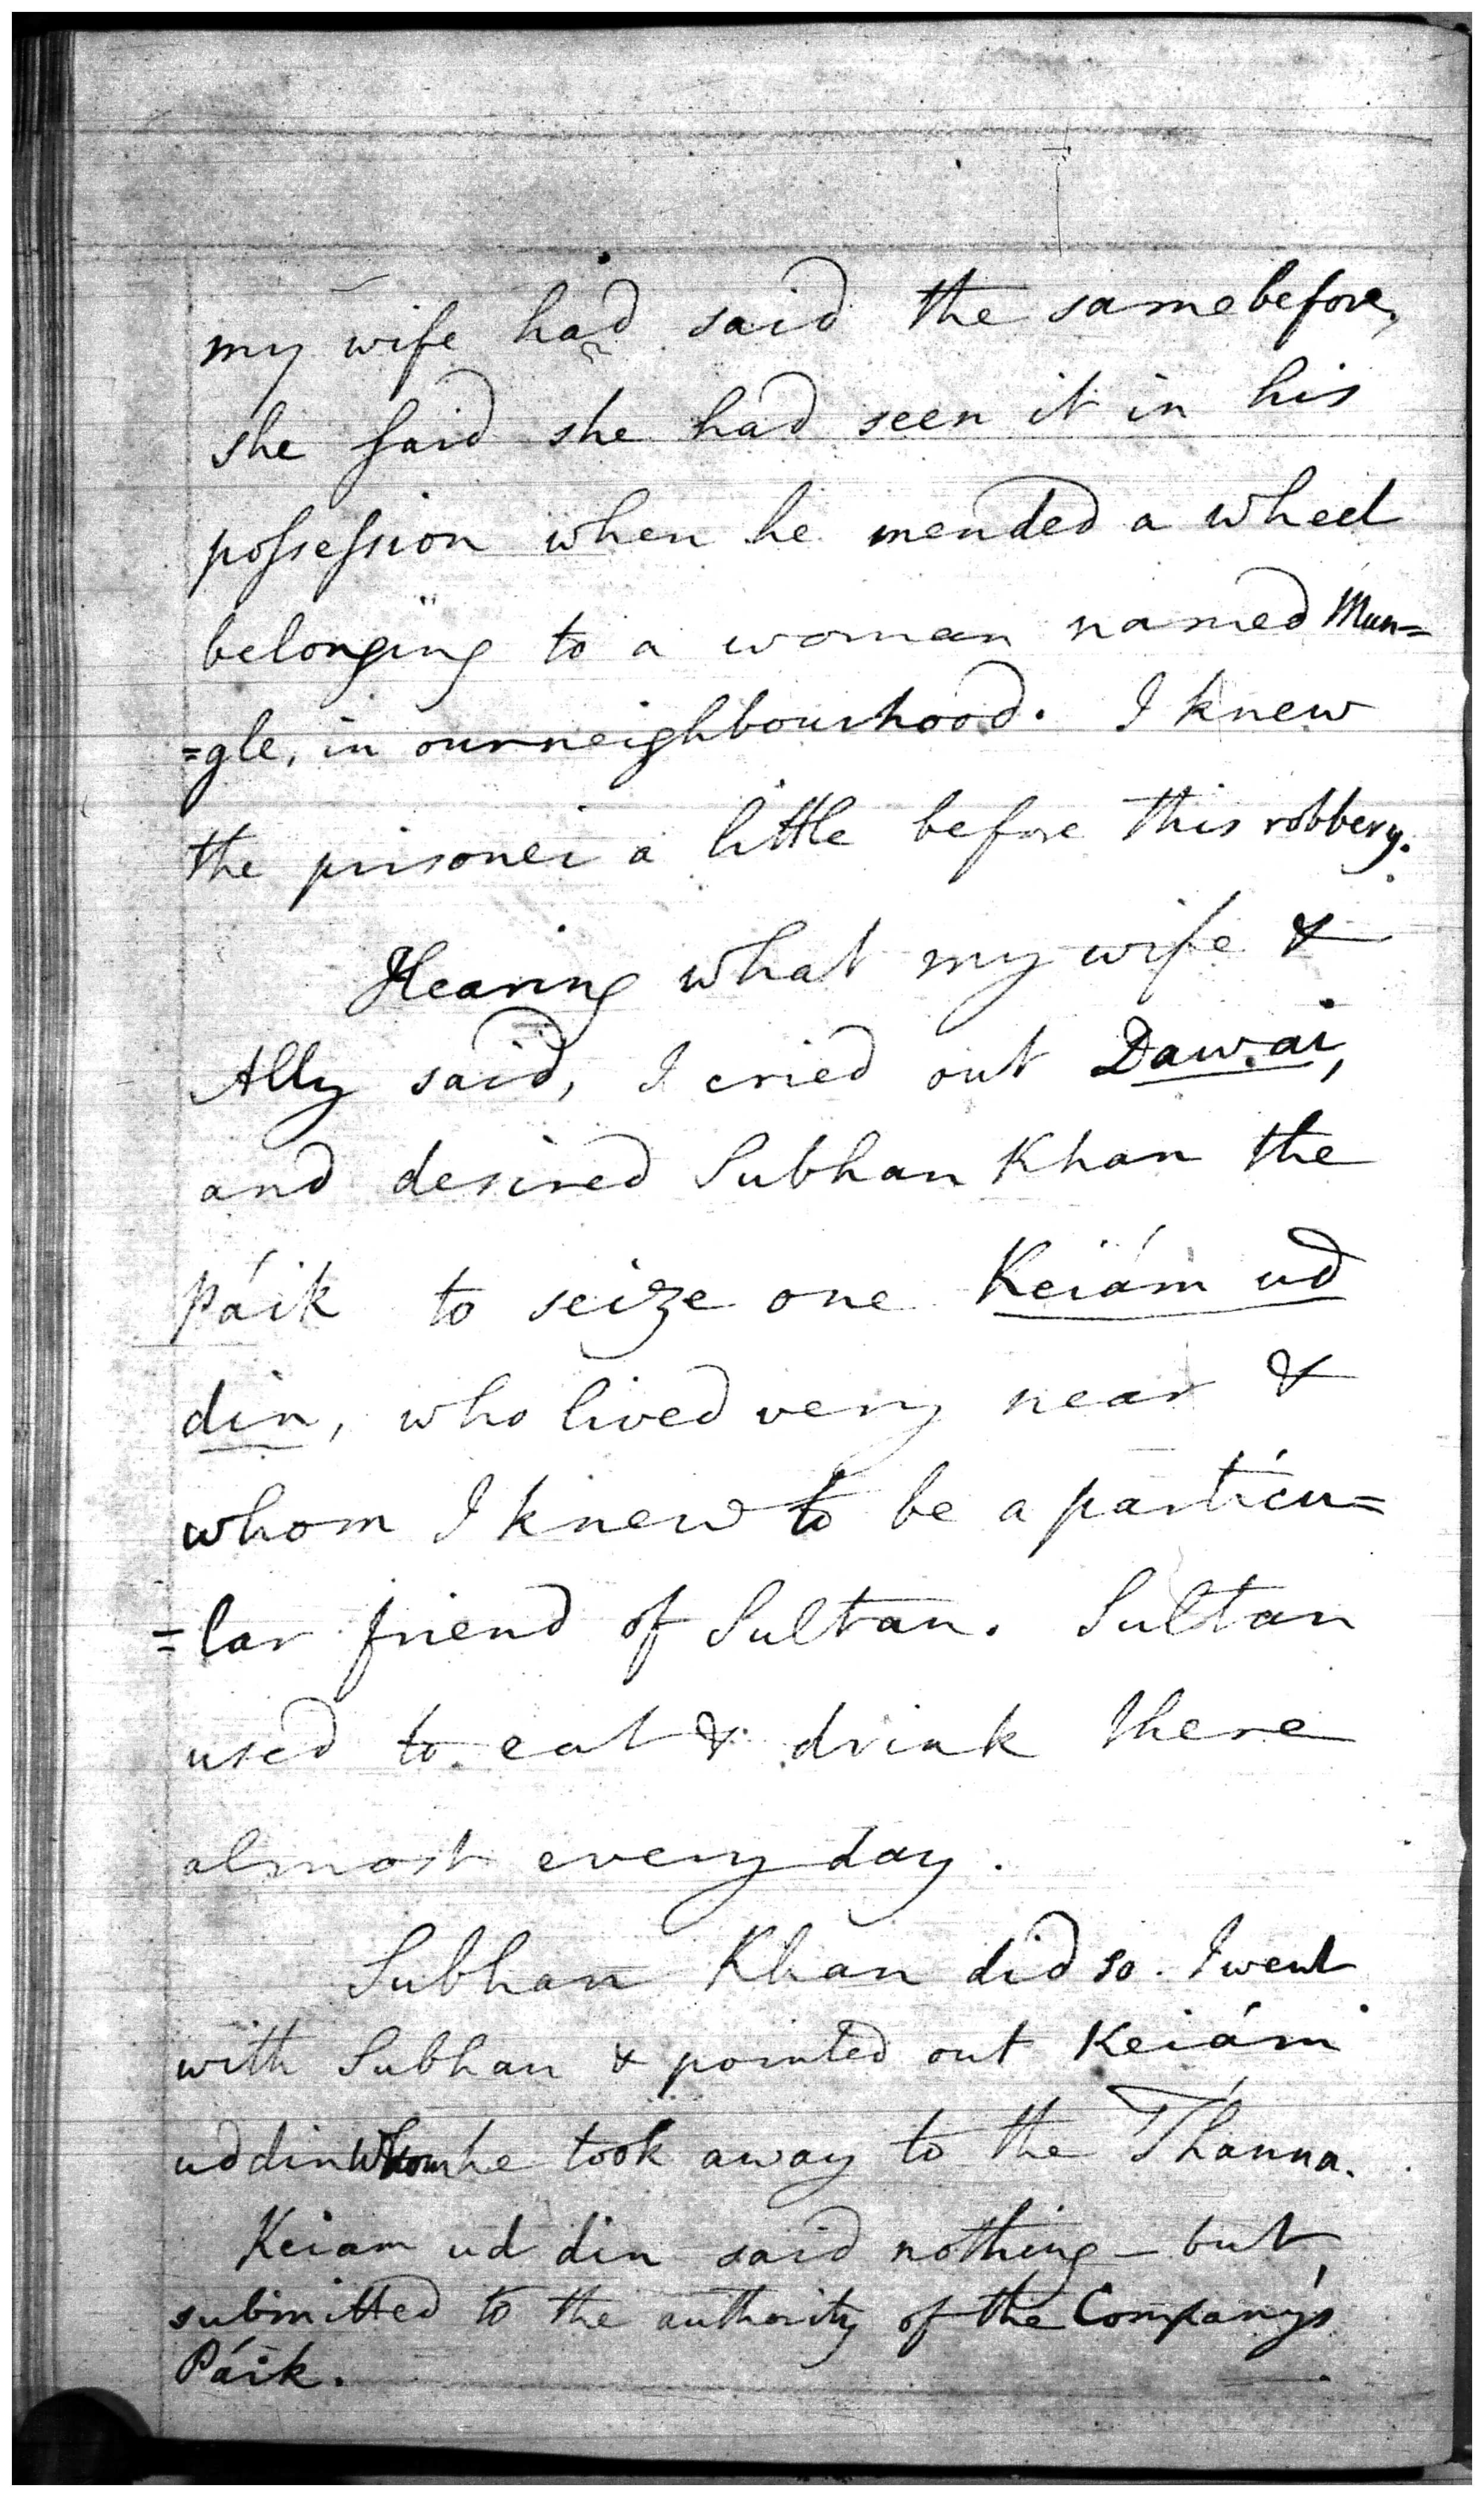 my wife had said the same before,
she said she had seen it in his
possession when he mended a wheel
belonging to a woman named Mun=
=gle, in our neighbourhood. I knew
the prisoner a little before this robbery.
Hearing what my wife &
Ally said, I cried out Dawai,
and desired Subhan Khan the
Páik to seize one Keiám ud
din, who lived very near &
whom I knew to be a particu=
=lar friend of Sultan. Sultan
used to eat & drink there
almost every day.
Subhan Khan did so. I went
with Subhan & pointed out Keiám
ud din whom he took away to the Thánna.
Keiam ud din said nothing - but
submitted to the authority of the Company's
Páik.